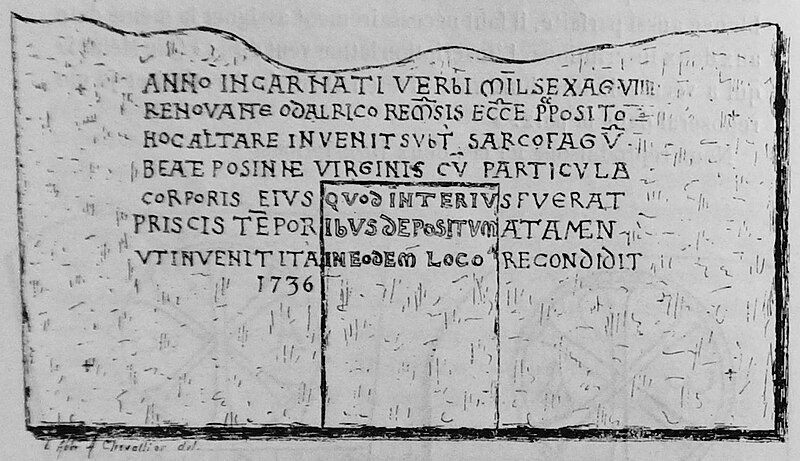 ANNO INCARNATI VERbI MĪLSEXAGVIIII
RENOVANTE ODALRICO REM̄SIS ECC̄E P̄POSITO
HOCALTARE INVENITSVbT̄ SARCOFAGV̄
BEATE POSINNE VIRGINIS CV̄ PARTICVLA
CORPORIS EIVS QVOD INTERIVS FVERAT
PRISCIS TĒPORIbVSDEPOSITVM ATAMEN
VTINVENIT ITA INEODEM LOCO RECONDIDIT
1736
Chevallier del.